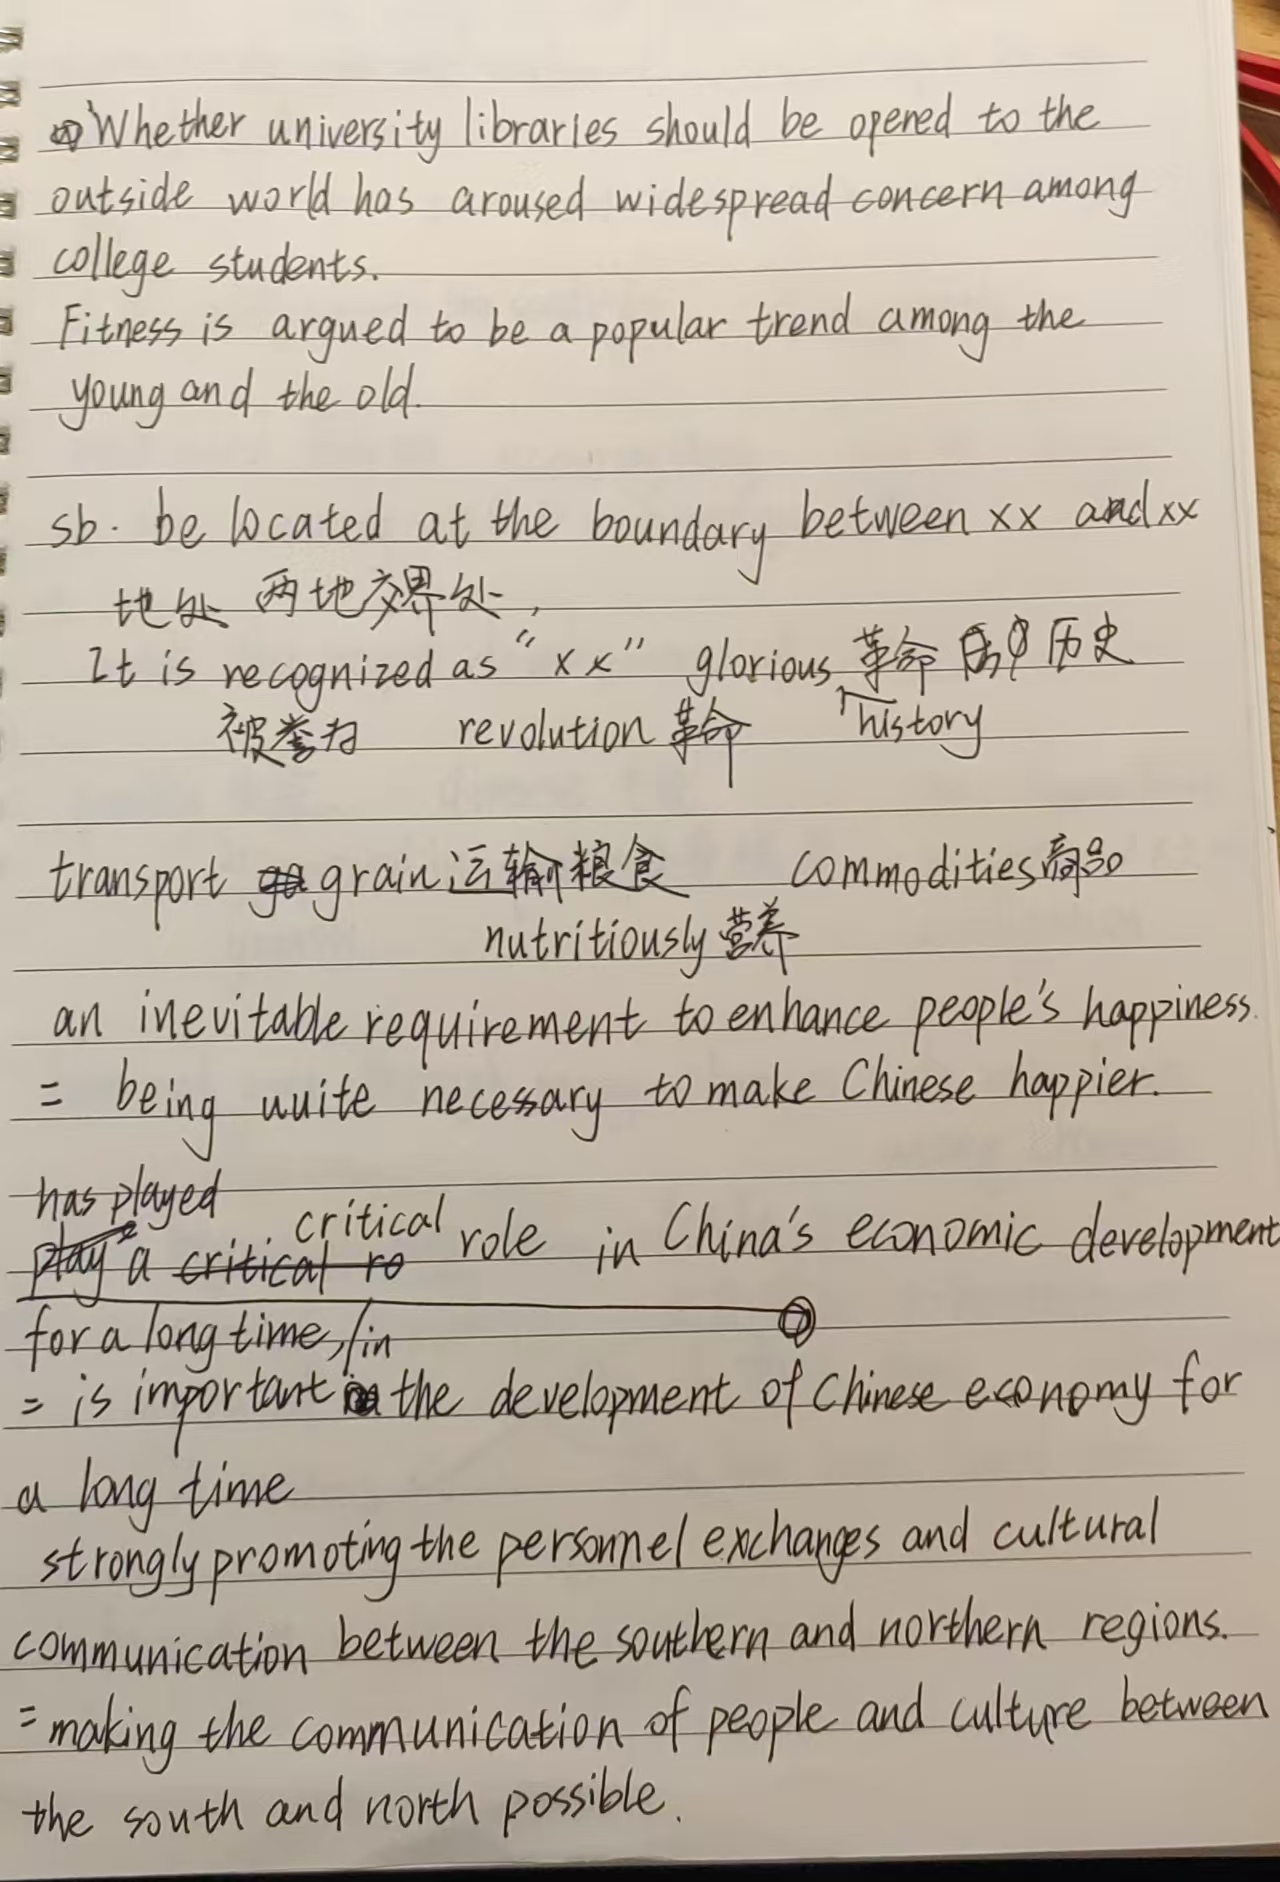 Whether university libraries should be opened to the
outside world has aroused widespread concern among
college students.
Fitness is argued to be a popular trend among the
young and the old.
sb. be located at the boundary between xx and xx
地处 两地交界处,
It is recognized as "xx" glorious 革命 历史
被誉为 revolution 革命 history
transport grain 运输粮食 commodities 商品
nutritiously 营养
an inevitable requirement to enhance people's happiness.
= being uuite necessary to make Chinese happier.
has played
play a critical ro critical role in China's economic development
for a long time, /in
= is important the development of Chinese economy for
a long time
strongly promoting the personnel exchanges and cultural
communication between the southern and northern regions.
= making the communication of people and culture between
the south and north possible.